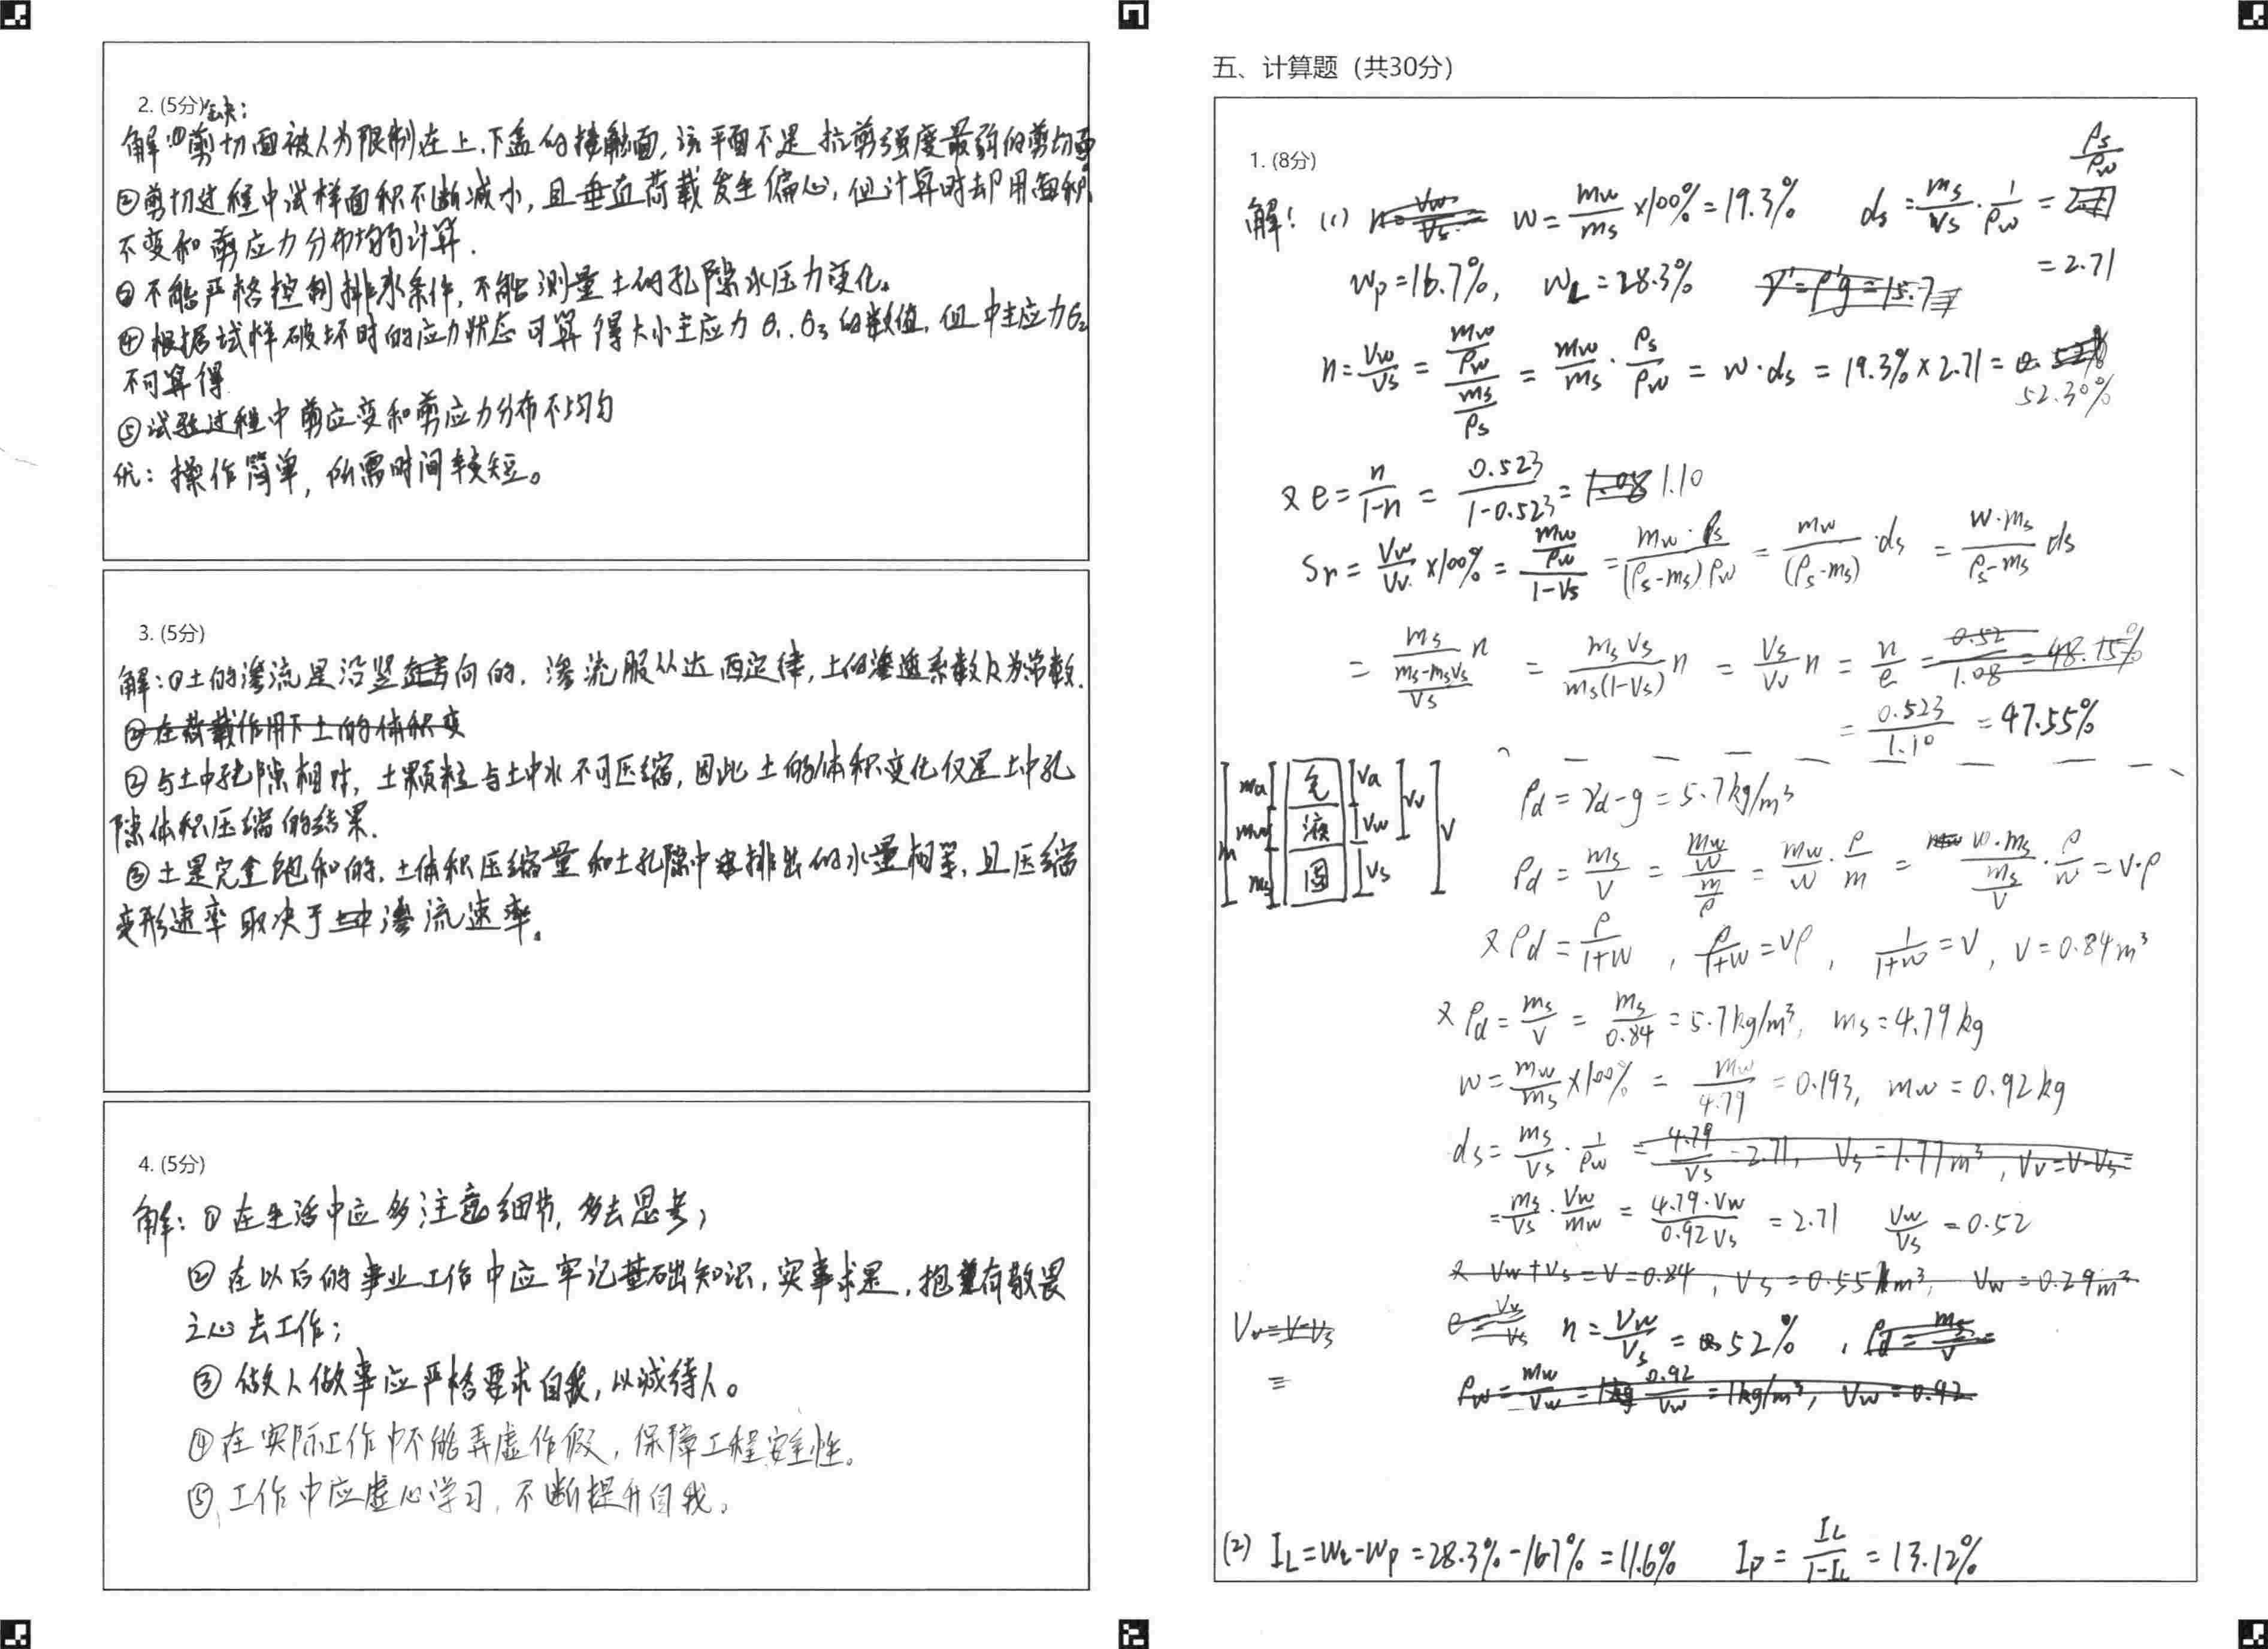 2. (5分) 缺:
解 ①剪切面被人为限制在上、下盒的接触面, 该平面不是抗剪强度最弱的剪切面
②剪切过程中试样面积不断减小, 且垂直荷载发生偏心, 但计算时却用面积
不变和剪应力分布均匀计算.
③不能严格控制排水条件, 不能测量土的孔隙水压力变化。
④根据试样破坏时的应力状态可算得大小主应力σ₁、σ₃的数值, 但中主应力σ₂
不可算得
⑤试验过程中剪应变和剪应力分布不均匀
优: 操作简单, 所需时间较短。
3. (5分)
解: ①土的渗流是沿竖向的, 渗流服从达西定律, 土的渗透系数k为常数.
②在荷载作用下土的体积变
②与土中孔隙相对, 土颗粒与土中水不可压缩, 因此土的体积变化仅是土中孔
隙体积压缩的结果.
③土是完全饱和的, 土体积压缩量和土孔隙中排出的水量相等, 且压缩
变形速率取决于渗流速率。
4. (5分)
解: ①在生活中应多注意细节, 多去思考;
②在以后的事业工作中应牢记基础知识, 实事求是, 抱有敬畏
之心去工作;
③做人做事应严格要求自我, 以诚待人。
④在实际工作中不能弄虚作假, 保障工程安全性。
⑤工作中应虚心学习, 不断提升自我。
五、计算题（共30分）
1. (8分)
解: (1) n=Vw/Vs w=mw/ms×100%=19.3% ds=ms/Vs·1/ρw=ρs/ρw
=2.71
wp=16.7%, wL=28.3% γ'=ρ'g=15.7
n=Vw/Vs=(mw/ρw)/(ms/ρs)=mw/ms·ρs/ρw=w·ds=19.3%×2.71=
52.30%
又e=n/(1-n)=0.523/(1-0.523)=1.08 1.10
Sr=Vw/Vv×100%=(mw/ρw)/(1-Vs)=mw·ρs/((ρs-ms)ρw)=mw/(ρs-ms)·ds=w·ms/(ρs-ms)·ds
=ms/((ms-msVs)/Vs) n=msVs/(ms(1-Vs)) n=Vs/Vv n=n/e=0.52/1.08=48.15%
=0.523/1.10=47.55%
m ma mw ms 气 液 固 Va Vw Vs Vv V
ρd=γd-g=5.7kg/m³
ρd=ms/V=(mw/w)/(m/ρ)=mw/w·ρ/m=w·ms/(ms/V)·ρ/w=V·ρ
又ρd=ρ/(1+w), ρ/(1+w)=Vρ, 1/(1+w)=V, V=0.84m³
又ρd=ms/V=ms/0.84=5.7kg/m³, ms=4.79kg
w=mw/ms×100%=mw/4.79=0.193, mw=0.92kg
ds=ms/Vs·1/ρw=4.79/Vs=2.71, Vs=1.77m³, Vv=V-Vs=
=ms/Vs·Vw/mw=4.79·Vw/0.92Vs=2.71 Vw/Vs=0.52
又Vw+Vs=V=0.84, Vs=0.55m³, Vw=0.29m³
Vv=V-Vs
=
e=Vv/Vs n=Vw/Vs=52%, ρd=ms/V=
ρw=mw/Vw=0.92/Vw=1kg/m³, Vw=0.92
(2) IL=wL-wp=28.3%-16.7%=11.6% Ip=IL/(1-IL)=13.12%